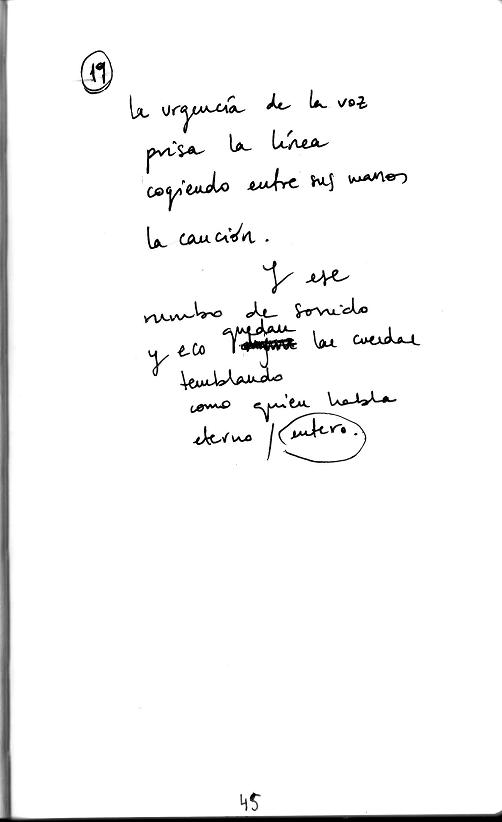 19
la urgencia de la voz
prisa la línea
cogiendo entre sus manos
la caución.
Y ese
rumbo de sonido
y eco quedan las cuerdas
temblando
como quien habla
eterno / entero.
45